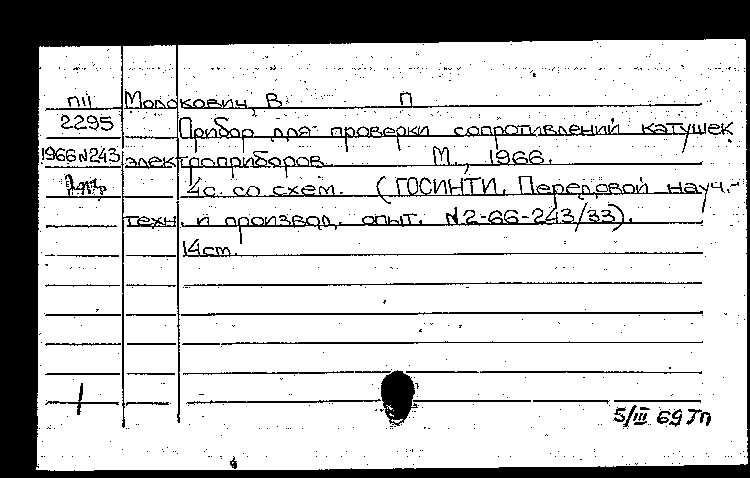 ПII Молокович, В П
2295 Прибор для проверки сопротивлений катушек
1966 N243 электроприборов. М., 1966.
4с. со схем. (ГОСИНТИ. Передовой науч.-
техн. и производ. опыт. N2-66-243/33).
14ст.
1
5/III 69 Тп